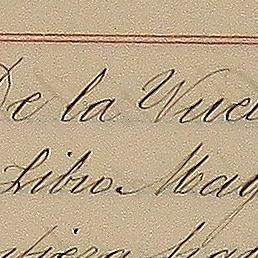 De la Vuel
Libro May